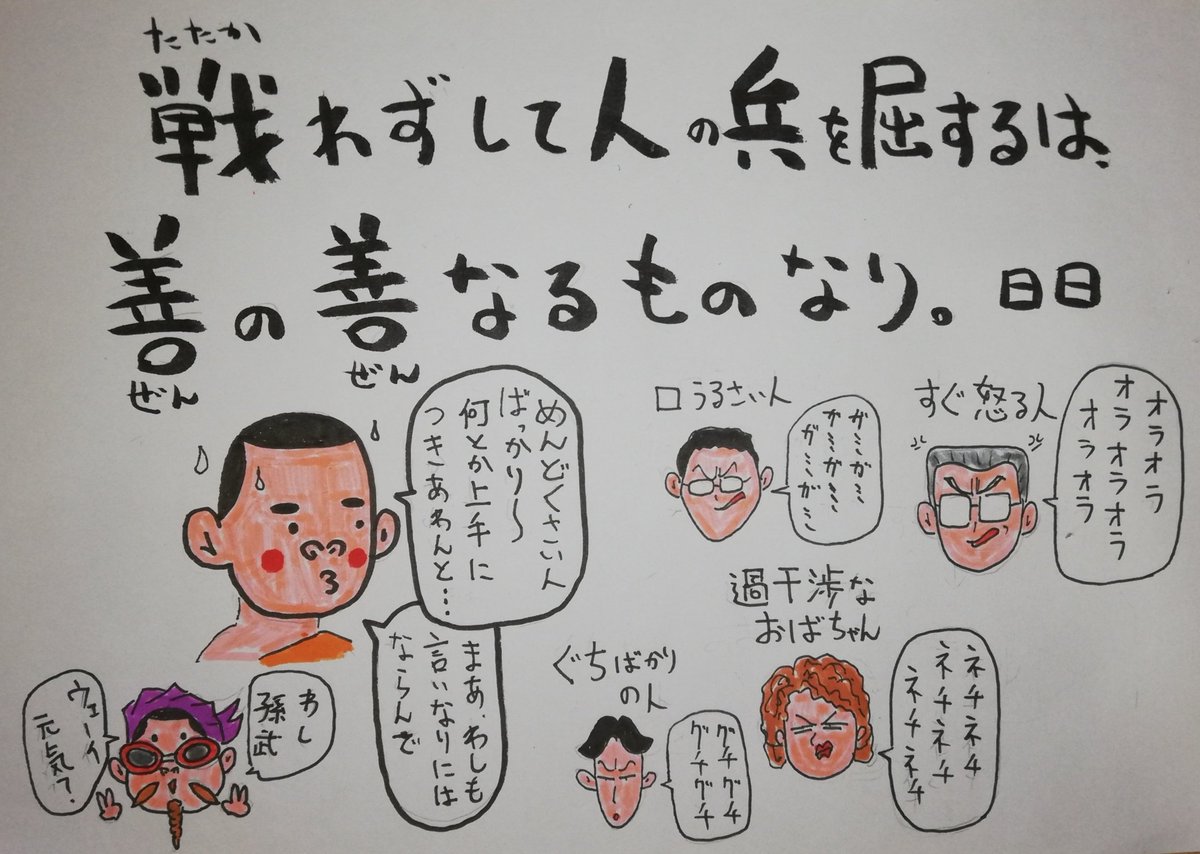 たたか
戦わずして人の兵を屈するは、
善の善なるものなり。日日
ぜん
ぜん
めんどくさい人
ばっかり〜
何とか上手に
つきあわんと…
まあ、わしも
言いなりには
ならんで
口うるさい人
ガミガミ
ガミガミ
ガミガミ
すぐ怒る人
オラオラ
オラオラオラ
オラオラ
過干渉な
おばちゃん
ネチネチ
ネチネチ
ネチネチ
ぐちばかり
の人
グチグチ
グチグチ
わし
孫武
ウェーイ
元気？